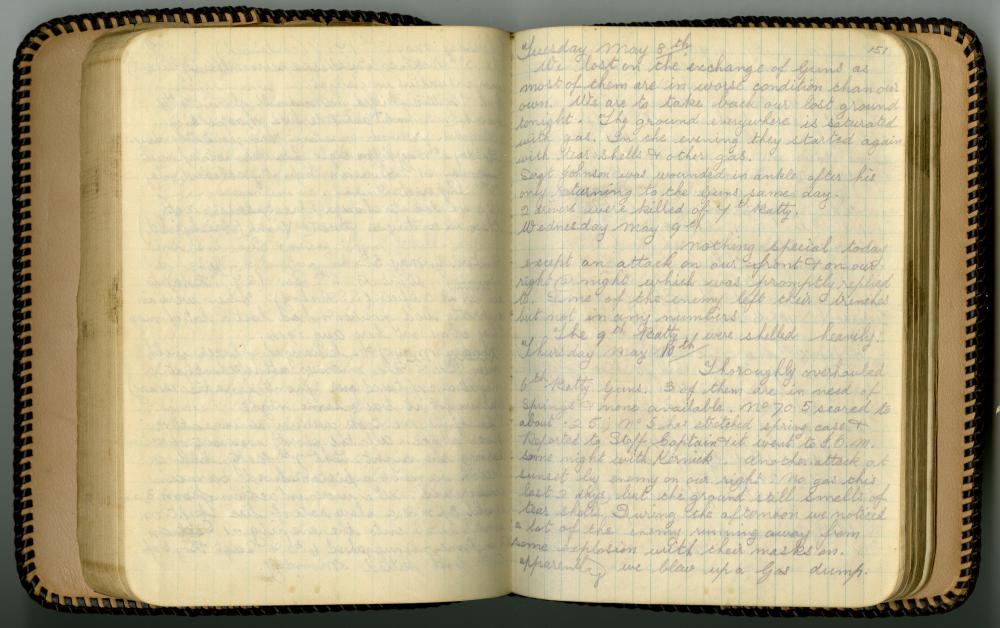 Tuesday May 8th 151
We lost on the exchange of Guns as
most of them are in worst condition than our
own. We are to take back our lost ground
tonight. The ground everywhere is saturated
with gas. In the evening they started again
with tear shells & other gas.
Sergt Johnson was wounded in ankle after his
only returning to the Guns same day.
2 drivers were killed of 7th Batty.
Wednesday May 9th
nothing special today
except an attack on our front & on our
right at night which was promptly replied
to. Some of the enemy left their trenches
but not in any numbers.
The 9th Batty were shelled heavily.
Thursday May 10th
Thoroughly overhauled
6th Batty Guns. 3 of them are in need of
springs & none available. No 70 5 scared to
about .25. No 5 has stretched spring case &
Reported to Staff Captain & it went to I.O.M.
same night with Kernick. Another attack at
sunset by enemy on our right. No gas this
last 2 dys, but the ground still smells of
tear shells. During the afternoon we noticed
a lot of the enemy running away from
some explosion with their masks on.
apparently we blew up a Gas dump.